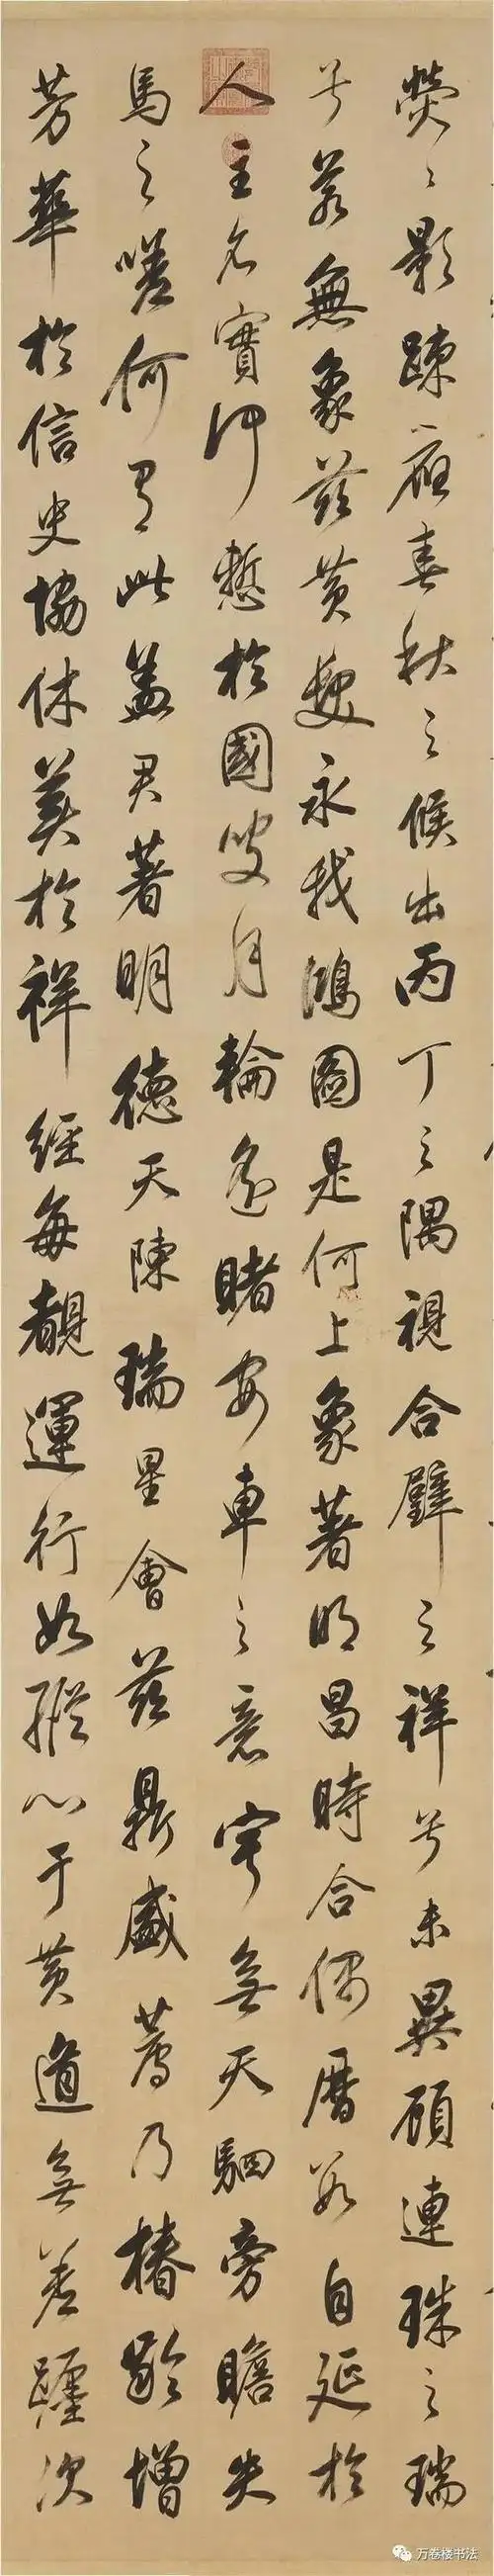 熒〻影踈應春秋之候出丙丁之隅視合璧之祥兮未異顧連珠之瑞
兮若無象茲黃髮永我鴻圖是何上象著明昌時合偶曆數自延於
人主名實慙於國叟月輪遙睹安車之意寧無天駟旁瞻失
馬之嗟何有此蓋君著明德天陳瑞星會茲鼎盛薦乃椿齡增
芳華於信史協休美於祥經每覩運行如縱心于黃道無差躔次
万卷楼书法